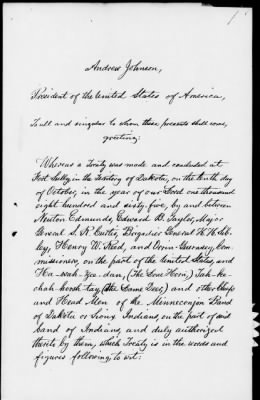 1
Andrew Johnson,
President of the United States of America,
To all and singular to whom these presents shall come,
greeting:
Whereas a Treaty was made and concluded at
Fort Sully, in the Territory of Dakota, on the tenth day
of October, in the year of our Lord one thousand
eight hundred and sixty-five, by and between
Newton Edmunds, Edward B. Taylor, Major
General S. R. Curtis, Brigadier General H. H. Sib-
ley, Henry W. Reed, and Orrin Guernsey, Com-
missioners, on the part of the United States, and
Ha-wah-zee-dan, (The Lone Horn,) Tah-ke-
chah-hoosh-tay, (The Lame Deer,) and other Chiefs
and Head Men of the Minneconjon Band
of Dakota or Sioux Indians, on the part of said
band of Indians, and duly authorized
thereto by them, which Treaty is in the words and
figures following, to wit: